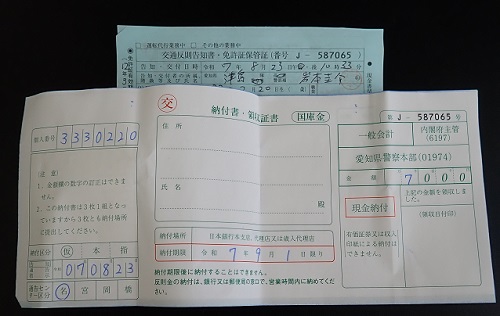 □運転代行業務中 □その他の業務中
交通反則告知書・免許証保管証(番号 J-587065)
告知・交付日時 令和 7年 8月 23日
交 納付書・領収証書 国庫金
第 J-587065 号
個人番号 3330220
住所
氏名
殿
一般会計 内閣府主管 (6197)
愛知県警察本部(01974)
金額 7000
(注意)
1. 金額欄の数字の訂正はできません。
2. この納付書は3枚1組となっていますから3枚とも納付場所に提出してください。
現金納付
上記の金額を領収しました。
(領収日付印)
有価証券又は収入印紙による納付はできません。
納付場所 日本銀行本支店、代理店又は歳入代理店
納付期限 令和 7年 9月 1日限り
納付期限後に納付することはできません。
反則金の納付は、銀行又は郵便局の窓口で、営業時間内に納めてください。
納付区分 仮 本 指
070823
通告センター区分 名 宮 岡 橋